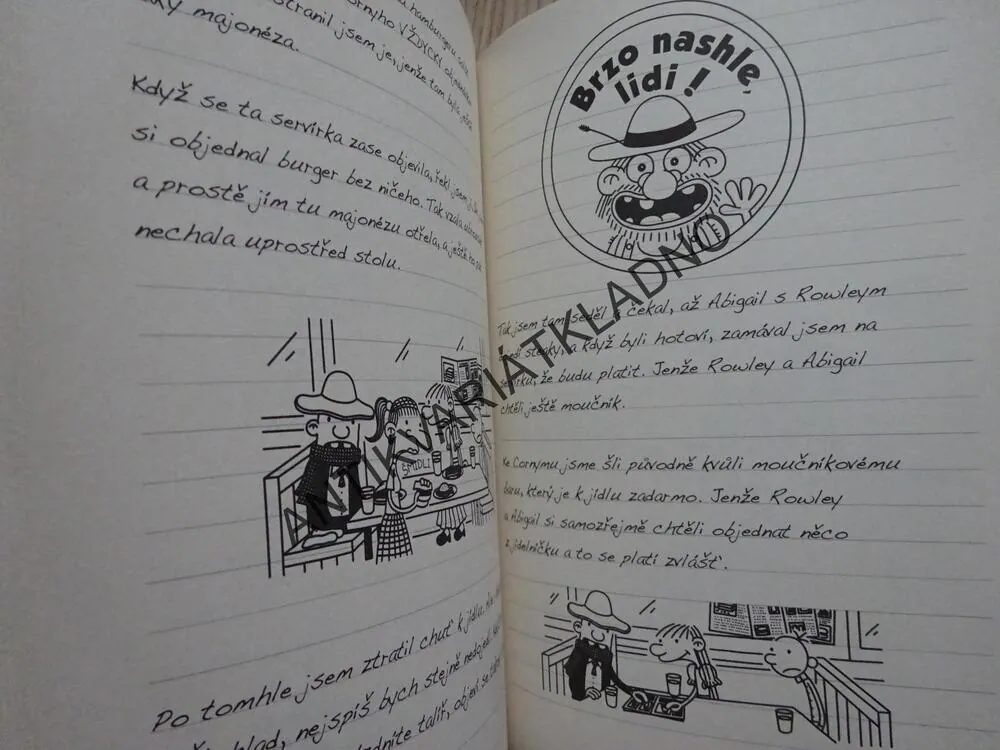 hamburgeru
ornyho VŽDYCKY
stranil jsem je, jenže tam byla ještě
majonéza.
Když se ta servírka zase objevila, řekl jsem jí,
si objednal burger bez ničeho. Tak vzala
a prostě jím tu majonézu otřela, a ještě ho
nechala uprostřed stolu.
ŠMIDLI
Po tomhle jsem ztratil chuť k jídlu.
hlad, nejspíš bych stejně nedojedl.
talíř, objeví se
Brzo nashle,
lidi!
Tak jsem tam seděl a čekal, až Abigail s Rowleym
steaky, a když byli hotoví, zamával jsem na
že budu platit. Jenže Rowley a Abigail
chtěli ještě moučník.
Ke Cornymu jsme šli původně kvůli moučníkovému
baru, který je k jídlu zadarmo. Jenže Rowley
a Abigail si samozřejmě chtěli objednat něco
z jídelníčku a to se platí zvlášť.
ANTIKVARIÁTKLADNO